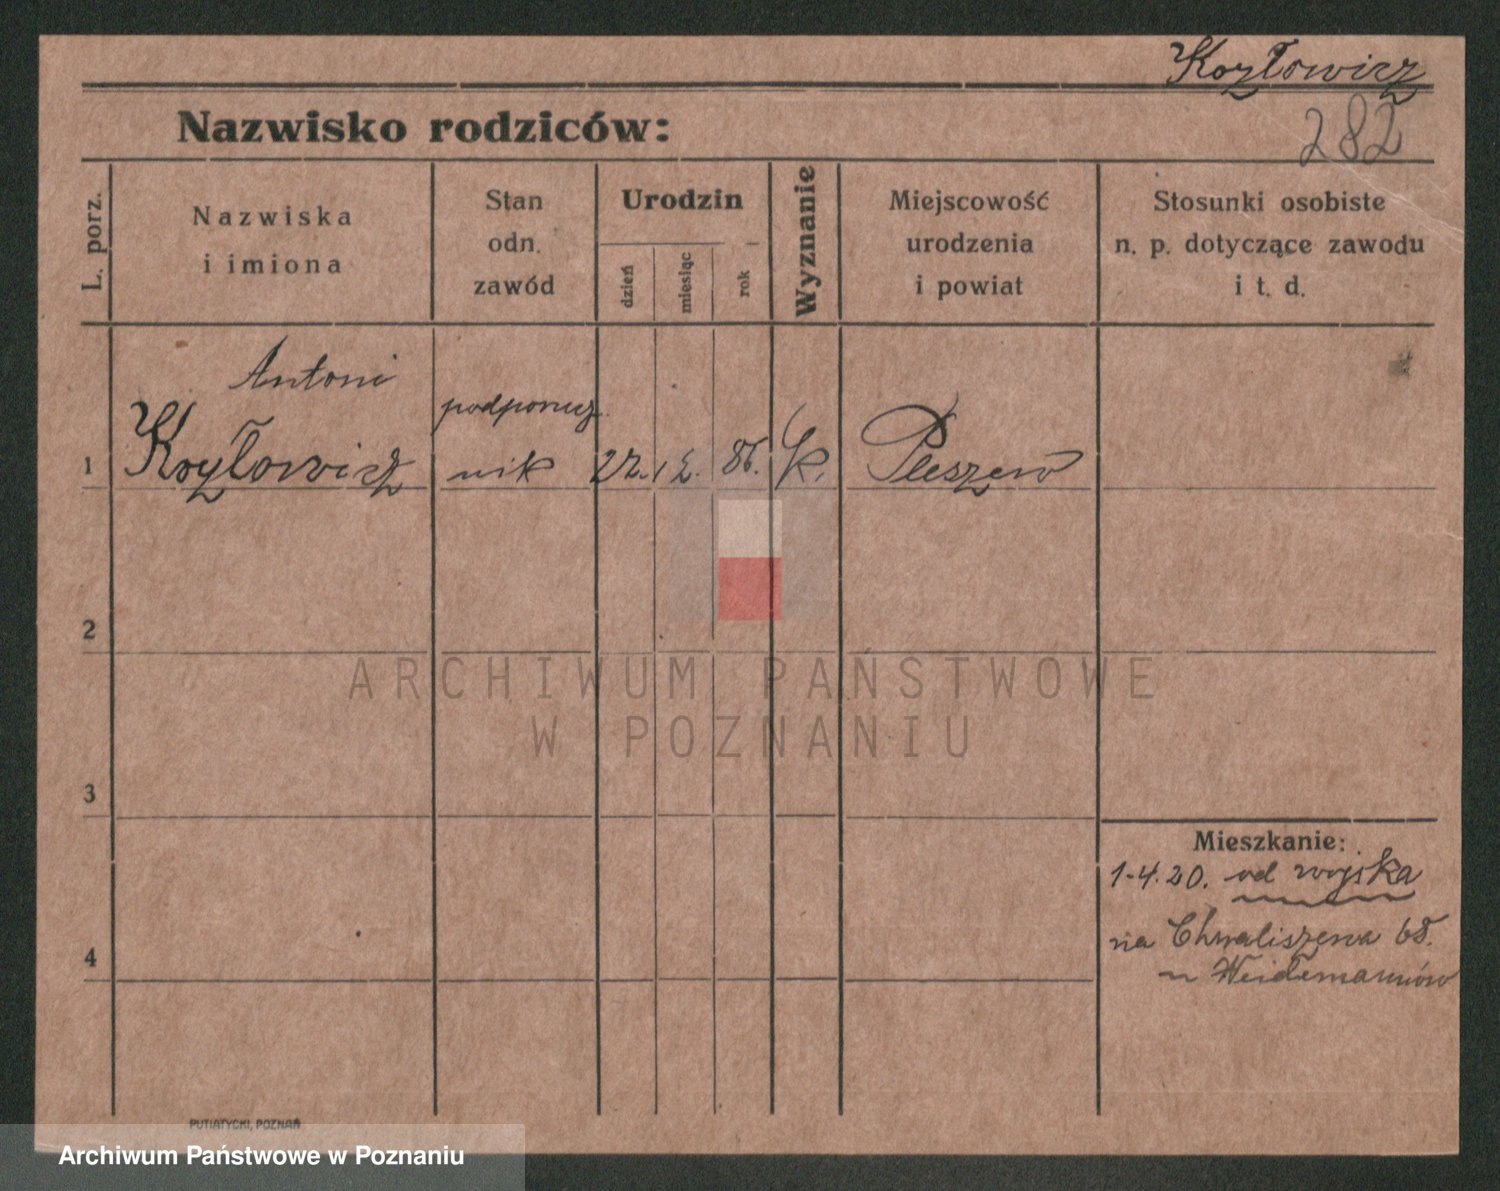 Kozłowicz
Nazwisko rodziców:
282
L. porz.
Nazwiska
i imiona
Stan
odn.
zawód
Urodzin
dzień
miesiąc
rok
Wyznanie
Miejscowość
urodzenia
i powiat
Stosunki osobiste
n. p. dotyczące zawodu
i t. d.
Antoni
1 Kozłowicz
podporucz
nik
22. 12. 86. k. Pleszew
2
3
4
Mieszkanie:
1-4.20. od wojska
na Chwaliszewa 68.
u Weidemannów
ARCHIWUM PAŃSTWOWE
W POZNANIU
PUTIATYCKI, POZNAŃ
Archiwum Państwowe w Poznaniu